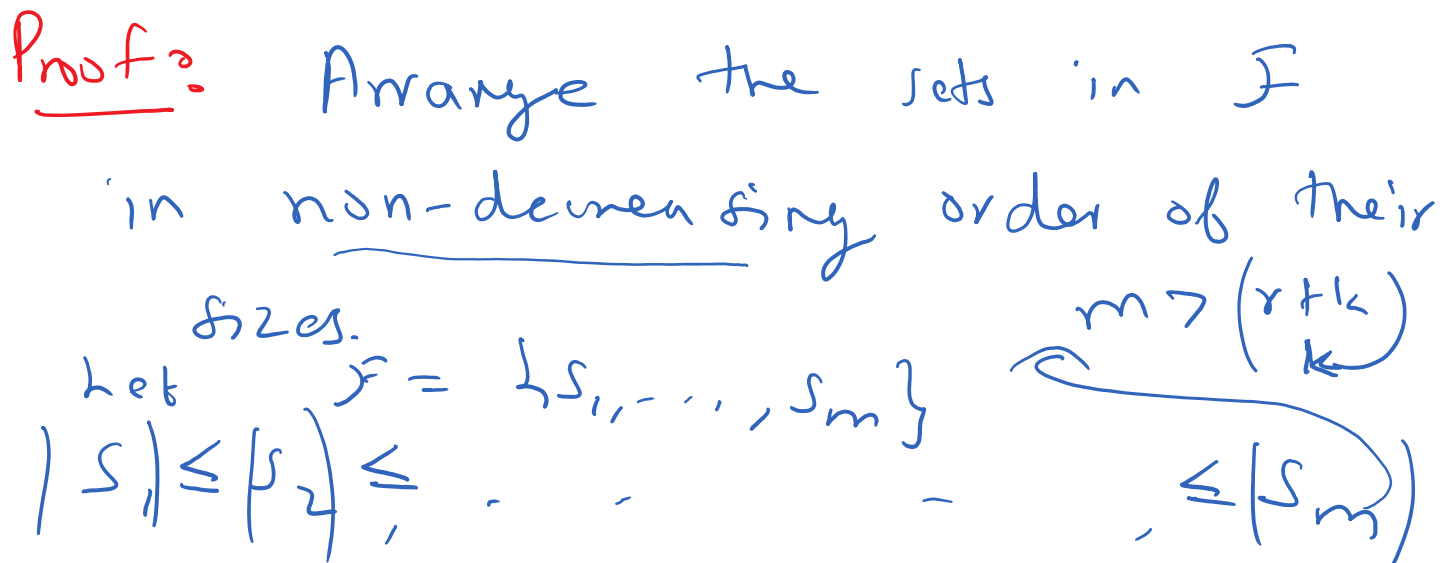 Proof: Arrange the sets in F
in non-decreasing order of their
sizes. m > (r+k k)
Let F = {S₁, - - . , Sₘ}
|S₁| ≤ |S₂| ≤, . - - , ≤ |Sₘ|